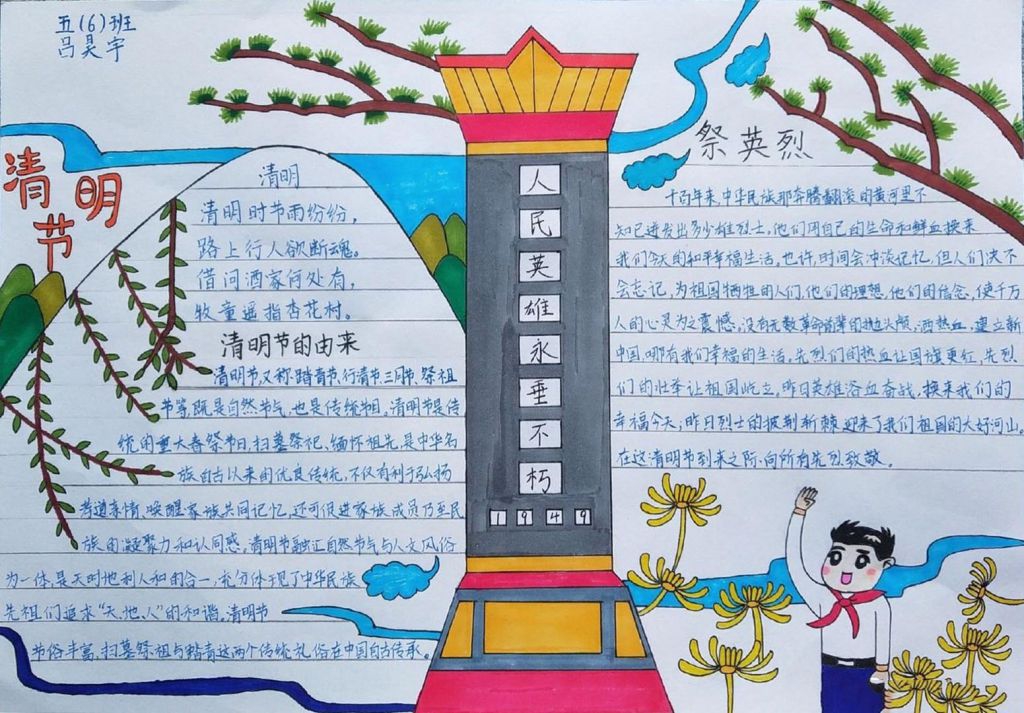 五(6)班
吕昊宇
清明节
清明
清明时节雨纷纷，
路上行人欲断魂。
借问酒家何处有，
牧童遥指杏花村。
清明节的由来
清明节，又称踏青节、行清节、三月节、祭祖
节等，既是自然节气，也是传统节日。清明节是传
统的重大春祭节日，扫墓祭祀、缅怀祖先，是中华名
族自古以来的优良传统，不仅有利于弘扬
孝道亲情、唤醒家族共同记忆，还可促进家族成员乃至民
族的凝聚力和认同感。清明节融汇自然节气与人文风俗
为一体，是天时地利人和的合一，充分体现了中华民族
先祖们追求“天、地、人”的和谐。清明节
节俗丰富，扫墓祭祖与踏青这两个传统礼俗在中国自古传承。
人
民
英
雄
永
垂
不
朽
1949
祭英烈
千百年来，中华民族那奔腾翻滚的黄河里不
知已迸发出多少雄烈士，他们用自己的生命和鲜血换来
我们今天的和平幸福生活。也许，时间会冲淡记忆，但人们决不
会忘记，为祖国牺牲的人们，他们的理想，他们的信念，使千万
人的心灵为之震憾。没有无数革命前辈的抛头颅，洒热血，建立新
中国，哪有我们幸福的生活。先烈们的热血让国旗更红，先烈
们的壮举让祖国屹立，昨日英雄浴血奋战，换来我们的
幸福今天；昨日烈士的披荆斩棘，迎来了我们祖国的大好河山。
在这清明节到来之际，向所有先烈致敬。